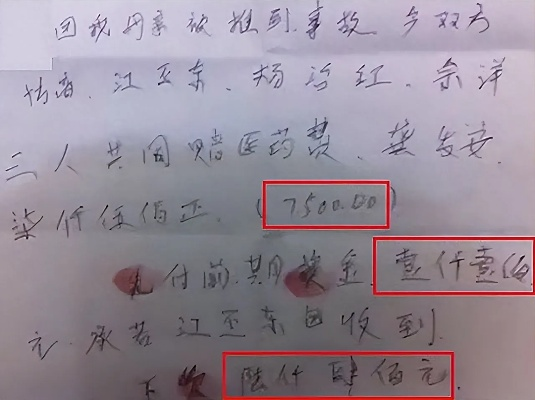 因我母亲被推到.事故 今双方
协商.江正东.杨治红.余洋
三人共同赔医药费.
柒仟伍佰正.(7.500.00)
先付前.其同 金.壹仟壹佰
元.承若江正东 收到.
下欠 陆仟肆佰元.